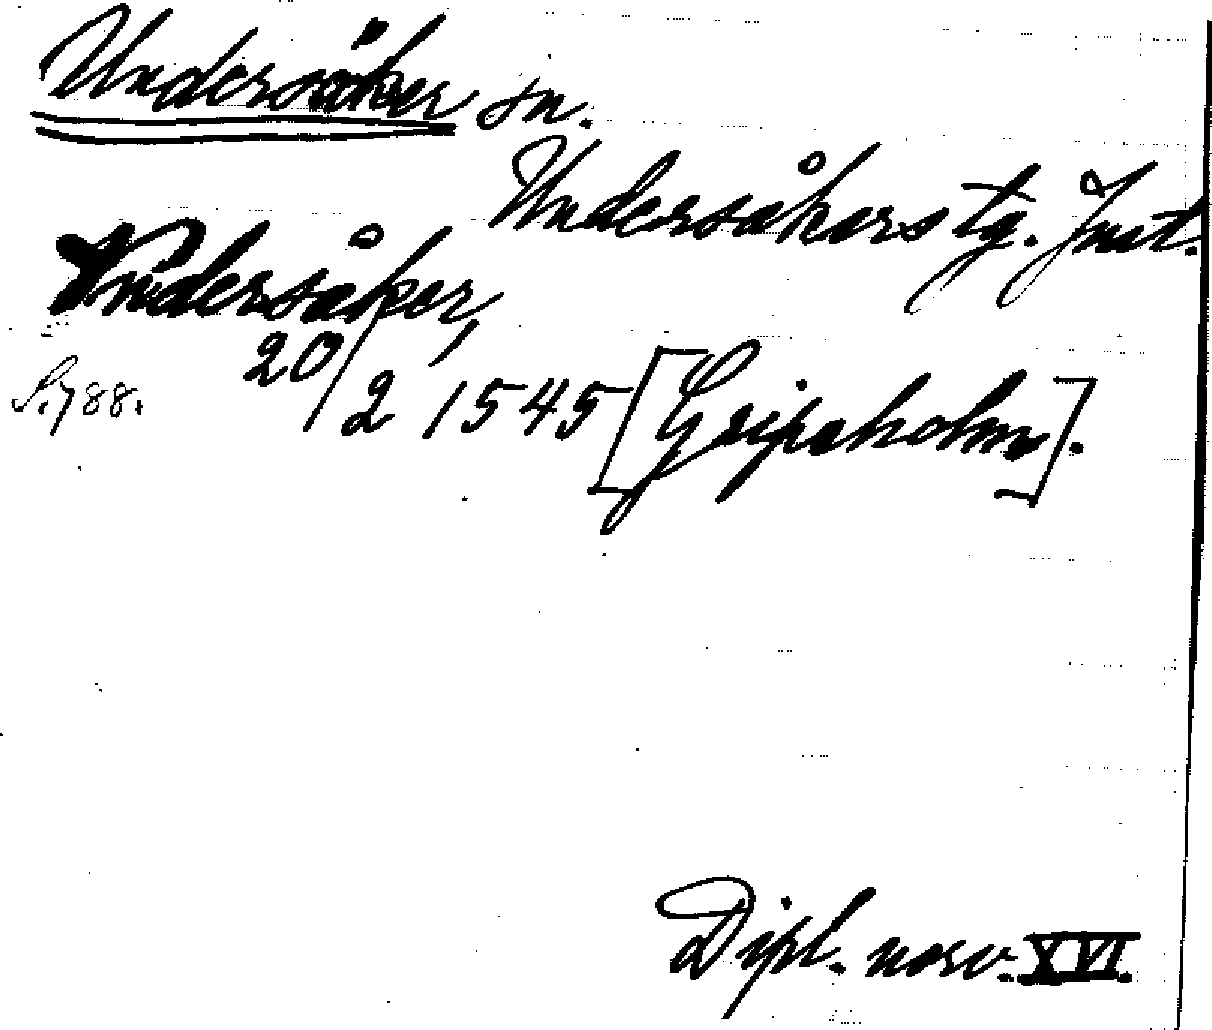 Undersåker sn.
Undersåkers tg. Jmt.
Undersåker,
S. 788.
20/2 1545 [Gripsholm].
Dipl. norv. XVI.